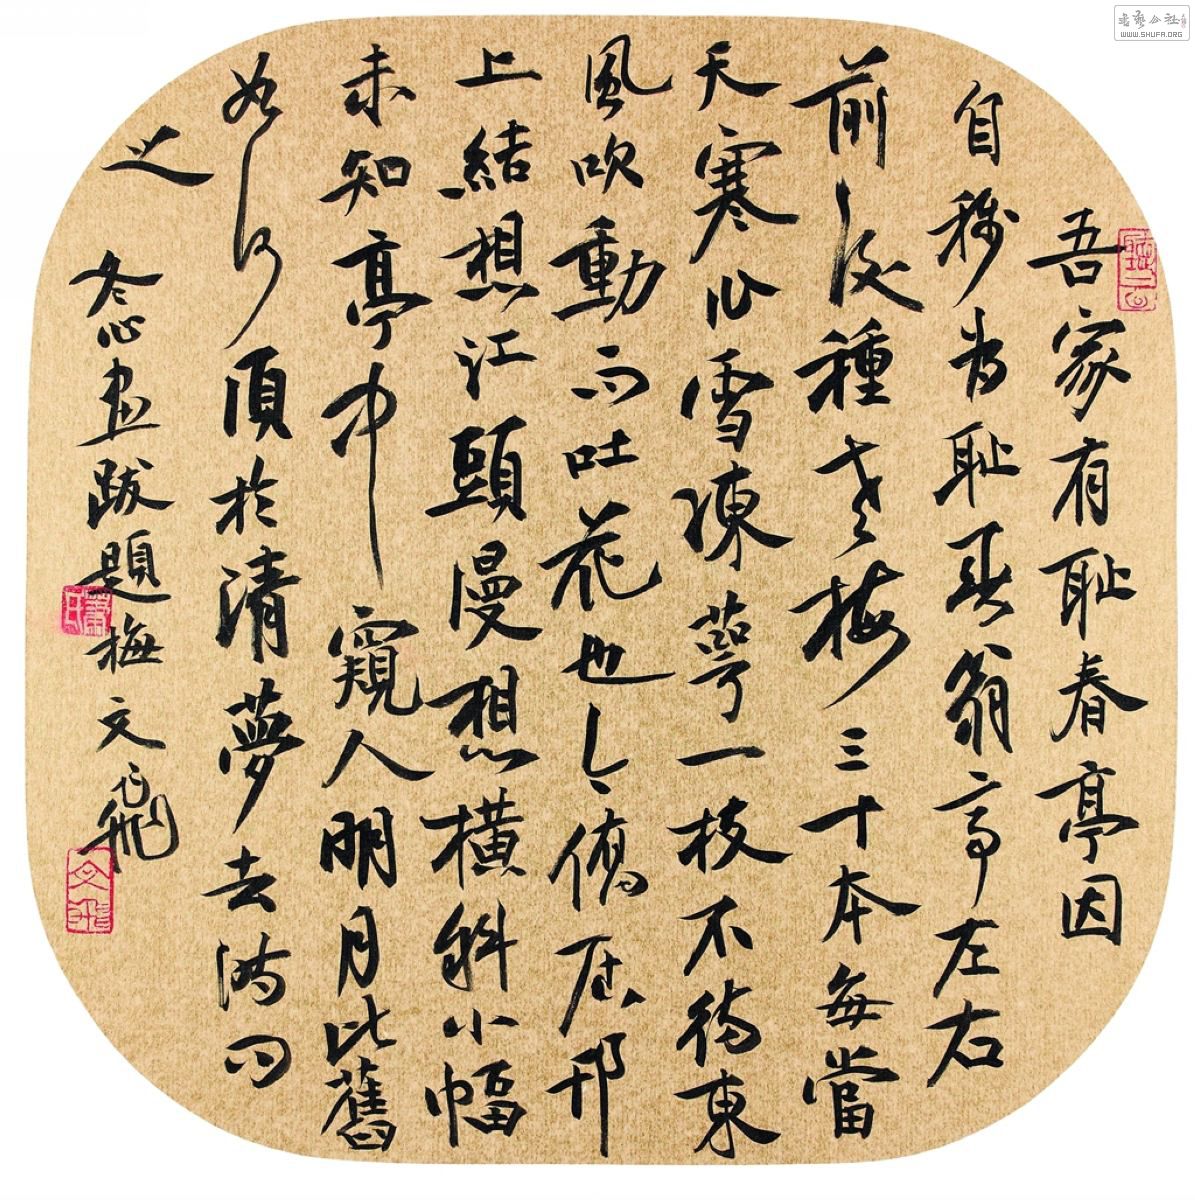 吾家有耻春亭因
自称为耻春翁亭左右
前后種老梅三十本每當
天寒作雪凍萼一枝不待東
風吹動而吐花也今侨居邗
上結想江頭漫想横斜小幅
未知亭中窺人明月比舊
如何須於清夢去满問
之
冬心畫跋題梅文飛
書艺公社
WWW.SHUFA.ORG